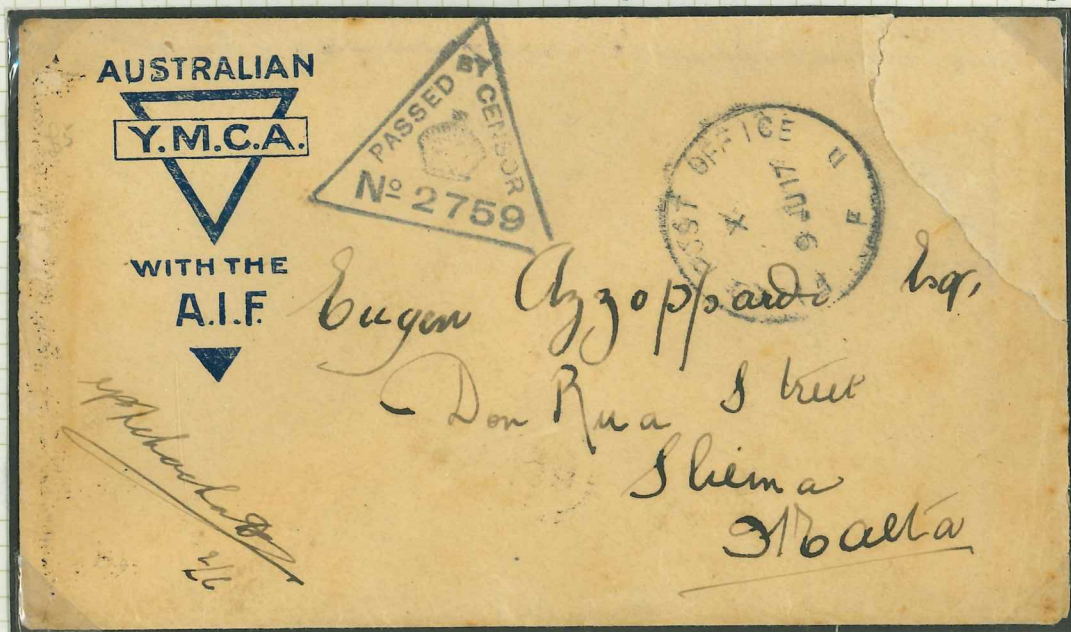 AUSTRALIAN
Y.M.C.A.
WITH THE
A.I.F.
PASSED BY CENSOR
No 2759
POST OFFICE
X
6 JU 17
Eugen Azzopardi Esq,
Don Rua Street
Sliema
Malta